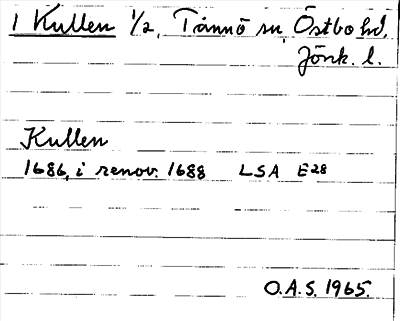 1 Kullen 1/2, Tånnö sn, Östbo hd,
Jönk. l.
Kullen
1686, i renov. 1688 LSA E28
O.A.S. 1965.